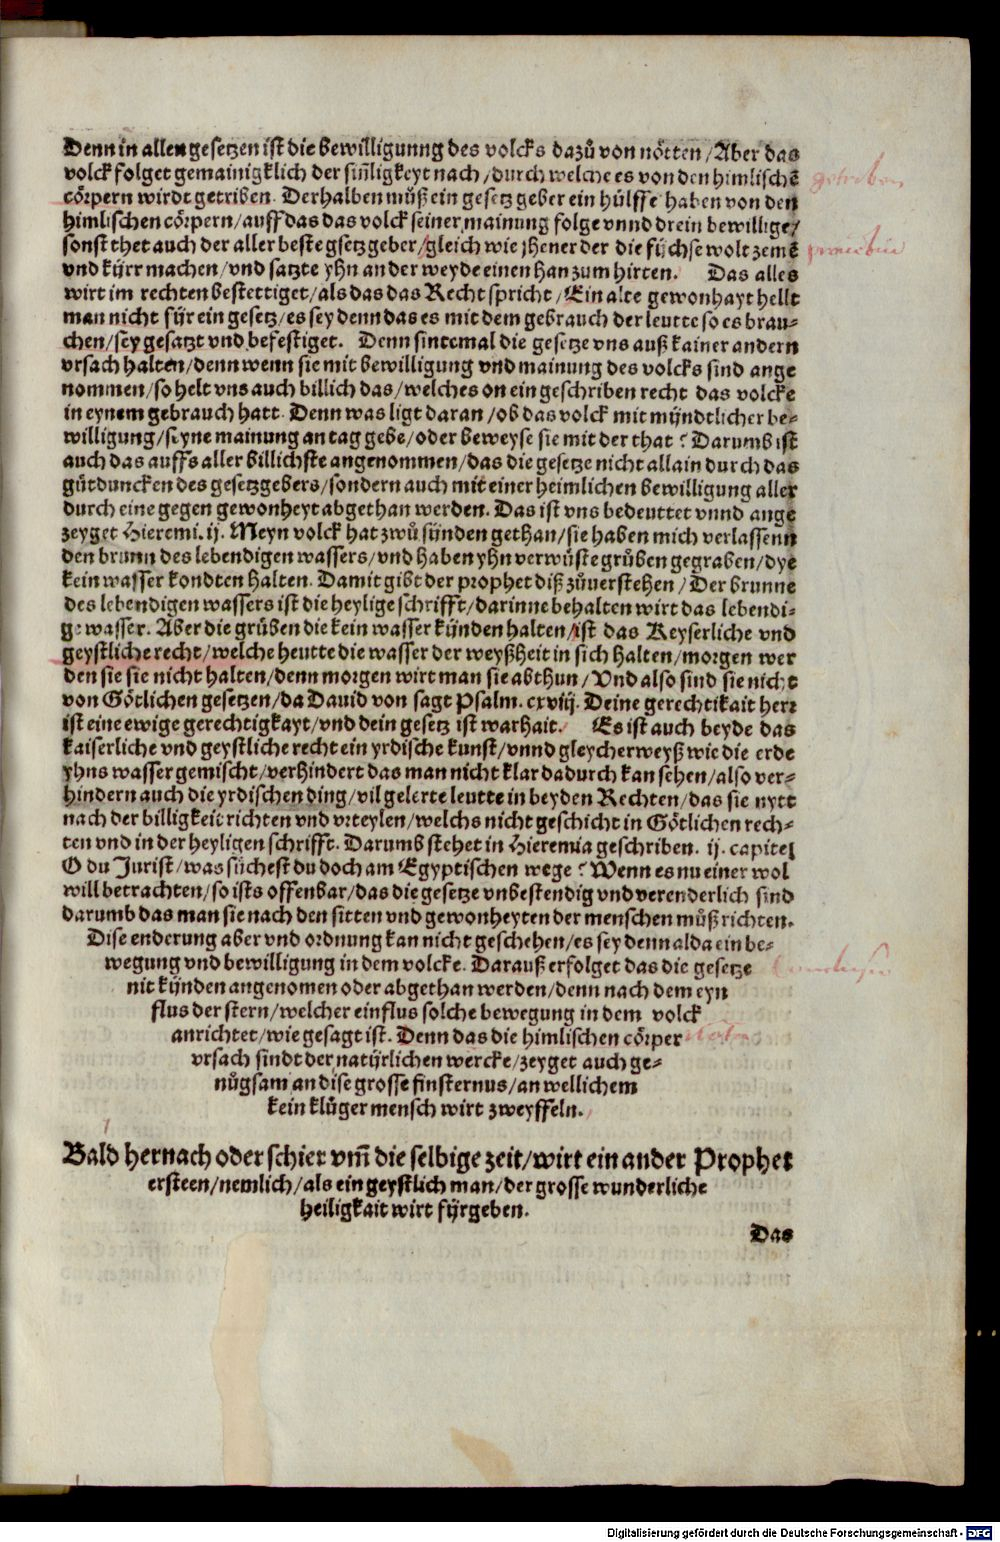 Denn in allen gesetzen ist die bewilligunng des volcks dazů von nötten / Aber das
volck folget gemainigklich der siñligkeyt nach / durch welche es von den himlischẽ
cörpern wirdt getriben. Derhalben můß ein gesetz geber ein hülffe haben von den
himlischen cörpern / auff das das volck seiner mainung folge vnnd drein bewillige /
sonst thet auch der aller beste gsetz geber / gleich wie jhener der die fýchse wolt zemẽ
vnd kýrr machen / vnd satzte yhn an der weyde einen han zum hirten. Das alles
wirt im rechten bestettiget / als das das Recht spricht / Ein alte gewonhayt hellt
man nicht fýr ein gesetz / es sey denn das es mit dem gebrauch der leutte so es brau-
chen / sey gesatzt vnd befestiget. Denn sintemal die gesetze vns auß kainer andern
vrsach halten / denn wenn sie mit bewilligung vnd mainung des volcks sind ange
nommen / so helt vns auch billich das / welches on ein geschriben recht das volcke
in eynem gebrauch hatt. Denn was ligt daran / ob das volck mit mýndtlicher be-
willigung / seyne mainung an tag gebe / oder beweyse sie mit der that? Darumb ist
auch das auffs aller billichste angenommen / das die gesetze nicht allain durch das
gůtduncken des gesetzgebers / sondern auch mit einer heimlichen bewilligung aller
durch eine gegen gewonheyt abgethan werden. Das ist vns bedeuttet vnnd ange
zeyget Hieremi. ij. Meyn volck hat zwů sýnden gethan / sie haben mich verlassenn
den brunn des lebendigen wassers / vnd haben yhn verwůste grůben gegraben / dye
kein wasser kondten halten. Damit gibt der prophet diß zůuerstehen / Der brunne
des lebendigen wassers ist die heylige schrifft / darinne behalten wirt das lebendi-
ge wasser. Aber die grůben die kein wasser kýnden halten / ist das Keyserliche vnd
geystliche recht / welche heutte die wasser der weyßheit in sich halten / morgen wer
den sie sie nicht halten / denn morgen wirt man sie abthun / Vnd also sind sie nicht
von Götlichen gesetzen / da Dauid von sagt Psalm. cxviij. Deine gerechtikait herr
ist eine ewige gerechtigkayt / vnd dein gesetz ist warhait. Es ist auch beyde das
kaiserliche vnd geystliche recht ein yrdische kunst / vnnd gleycherweyß wie die erde
yhns wasser gemischt / verhindert das man nicht klar dadurch kan sehen / also ver-
hindern auch die yrdischen ding / vil gelerte leutte in beyden Rechten / das sie nytt
nach der billigkeit richten vnd vrteylen / welchs nicht geschicht in Götlichen rech-
ten vnd in der heyligen schrifft. Darumb stehet in Hieremia geschriben. ij. capitel
O du Jurist / was sůchest du doch am Egyptischen wege? Wenn es nu einer wol
will betrachten / so ists offenbar / das die gesetze vnbestendig vnd verenderlich sind
darumb das man sie nach den sitten vnd gewonheyten der menschen můß richten.
Dise enderung aber vnd ordnung kan nicht geschehen / es sey denn alda ein be-
wegung vnd bewilligung in dem volcke. Darauß erfolget das die gesetze
nit kýnden angenomen oder abgethan werden / denn nach dem eyn
flus der stern / welcher einflus solche bewegung in dem volck
anrichtet / wie gesagt ist. Denn das die himlischen cörper
vrsach sindt der natýrlichen wercke / zeyget auch ge-
nůgsam an dise grosse finsternus / an wellichem
kein klůger mensch wirt zweyffeln.
Bald hernach oder schier vm̃ die selbige zeit / wirt ein ander Prophet
ersteen / nemlich / als ein geystlich man / der grosse wunderliche
heiligkait wirt fýrgeben.
Das
getriben
Digitalisierung gefördert durch die Deutsche Forschungsgemeinschaft - DFG